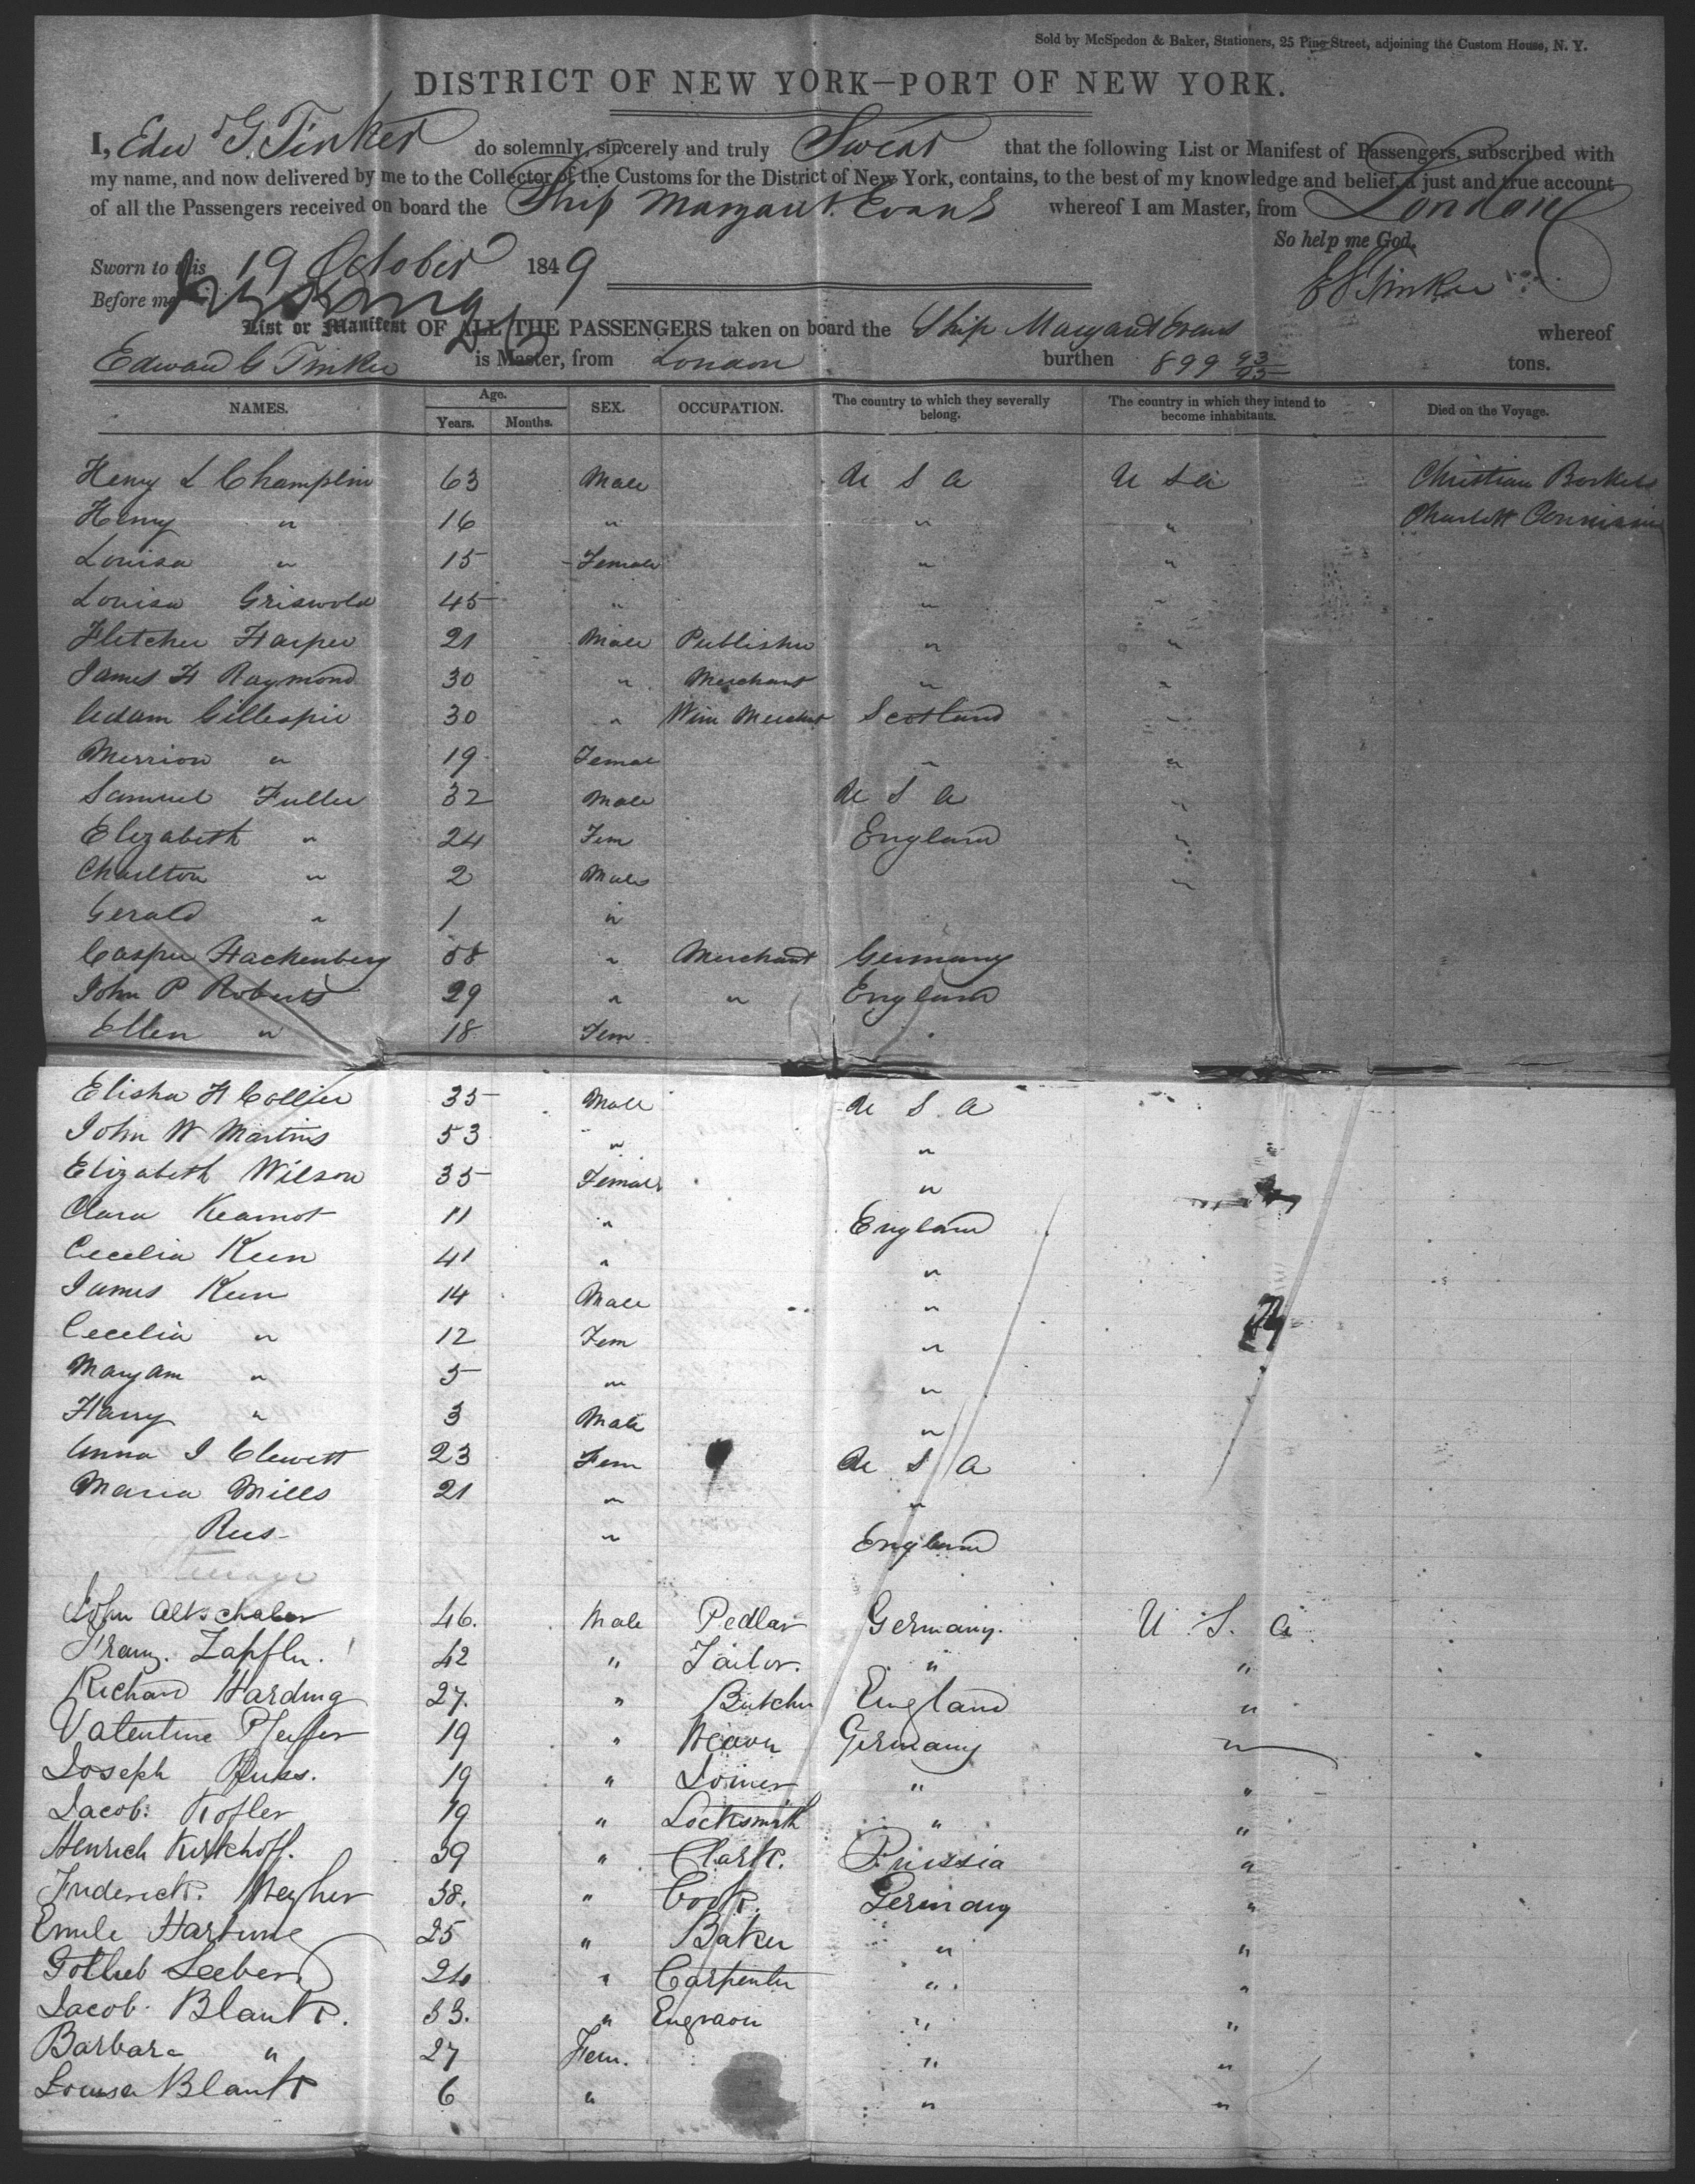 Sold by McSpedon & Baker, Stationers, 25 Pine Street, adjoining the Custom House, N. Y.
DISTRICT OF NEW YORK—PORT OF NEW YORK.
I, Edwd G. Tinker do solemnly, sincerely and truly Swear that the following List or Manifest of Passengers, subscribed with
my name, and now delivered by me to the Collector of the Customs for the District of New York, contains, to the best of my knowledge and belief, a just and true account
of all the Passengers received on board the Ship Margaret Evans whereof I am Master, from London
So help me God.
Sworn to this 19 October 1849
E G Tinker
Before me
List or Manifest OF ALL THE PASSENGERS taken on board the Ship Margaret Evans whereof
Edward G Tinker is Master, from London burthen 899 93/95 tons.
NAMES. Age. Years. Months. SEX. OCCUPATION. The country to which they severally belong. The country in which they intend to become inhabitants. Died on the Voyage.
Henry L Champlin 63 Male U S A U S A Christian
Henry " 16 " " " Charlott
Louisa " 15 Female " "
Louisa Griswold 45 " " "
Fletcher Harper 21 Male Publisher " "
James H Raymond 30 " Merchant " "
Adam Gillespie 30 " Wine Merchant Scotland "
Merrion " 19 Female " "
Samuel Fuller 32 Male U S A "
Elizabeth " 24 Fem England "
Charlton " 2 Male "
Gerald " 1 "
Casper Hackenberg 58 " Merchant Germany
John P Roberts 29 " " England
Ellen " 18 Fem
Elisha H Collier 35 Male U S A
John W Martins 53 " "
Elizabeth Wilson 35 Female "
Clara 11 " England
Cecelia Keen 41 " "
James Keen 14 Male "
Cecelia " 12 Fem "
Maryam " 5 " "
Harry " 3 Male "
Anna I Clewett 23 Fem U S A
Maria Mills 21 " "
Rees " England
Steerage
John Altschaler 46. Male Pedlar Germany. U. S. A
Franz. Zapfln. 42 " Tailor. " "
Richard Harding 27. " Butcher England "
Valentine Pfeiffer 19 " Weaver Germany "
Joseph 19 " Joiner " "
Jacob. Kofler 19 " Locksmith " "
Henrich Kirkhoff. 39 " Clark. Prussia "
Frederick. 38. " Cook. Germany "
Emile Hartung 25 " Baker " "
Gotlieb Seeber 26 " Carpenter " "
Jacob Blank. 33. " Engraver " "
Barbara " 27 Fem. " "
Louisa Blank 6 " " "